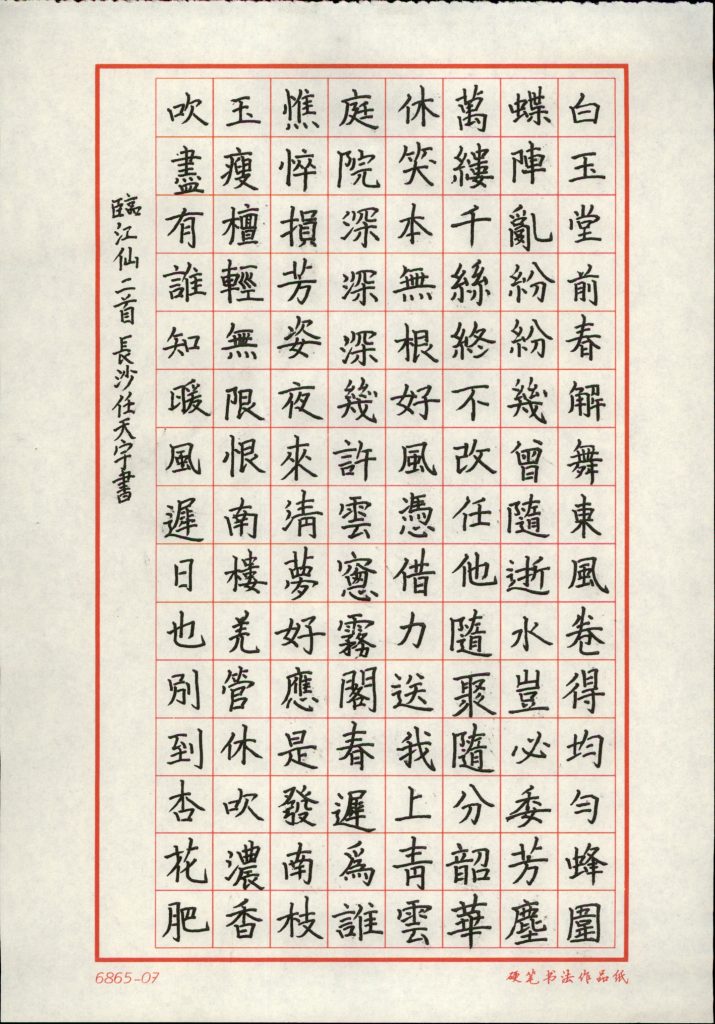 白玉堂前春解舞東風卷得均勻蜂圍
蝶陣亂紛紛幾曾隨逝水豈必委芳塵
萬縷千絲終不改任他隨聚隨分韶華
休笑本無根好風憑借力送我上青雲
庭院深深深幾許雲窻霧閣春遲爲誰
憔悴損芳姿夜來清夢好應是發南枝
玉瘦檀輕無限恨南樓羌管休吹濃香
吹盡有誰知暖風遲日也別到杏花肥
臨江仙二首 長沙任天宇書
6865-07
硬笔书法作品纸